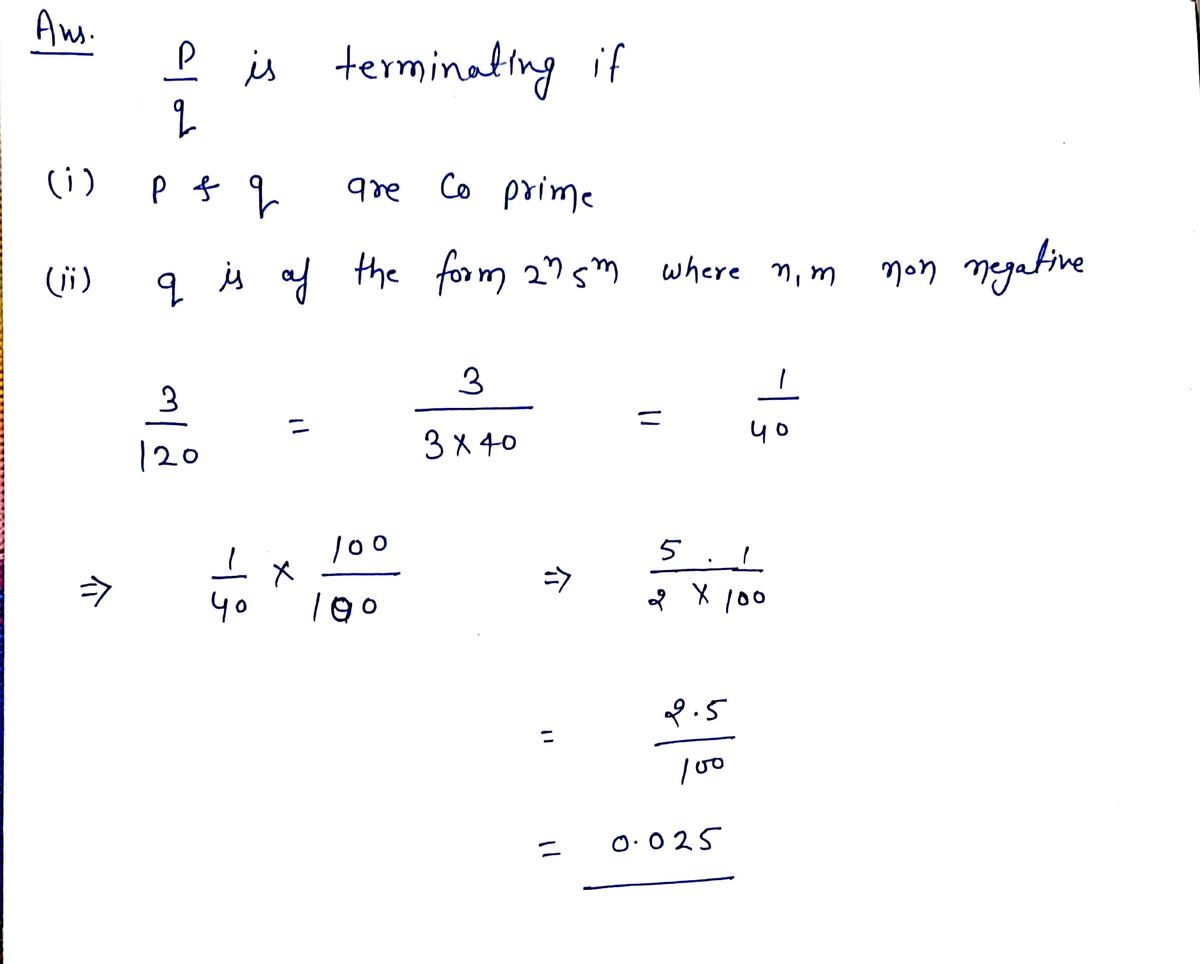 Ans.
p/q is terminating if
(i) p & q are Co prime
(ii) q is of the form 2ⁿ5ᵐ where n, m non negative
3/120 = 3/(3×40) = 1/40
⇒ 1/40 × 100/100 ⇒ (5 . 1)/(2 × 100)
= 2.5/100
= 0.025